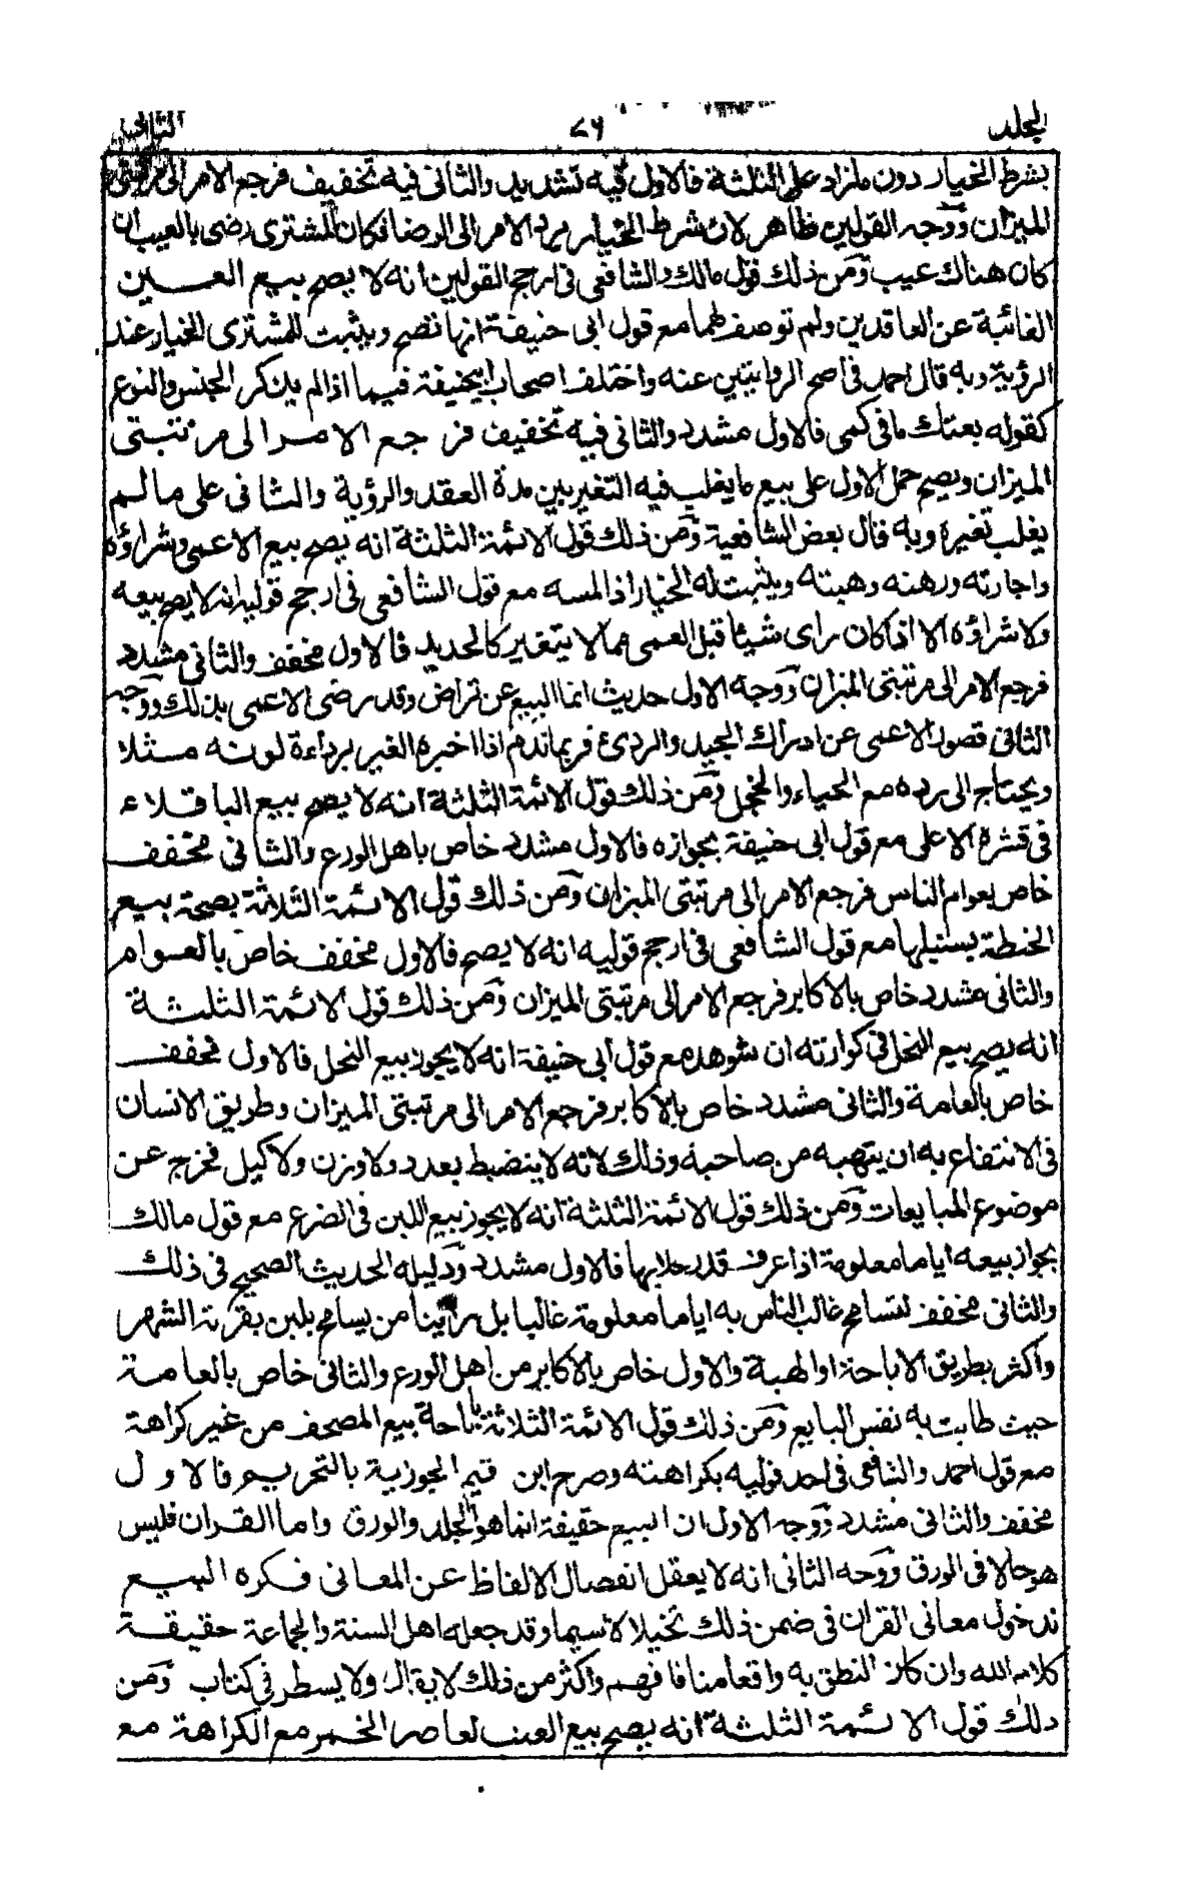 المجلد ٧٦ الثانى
بشرط الخيار دون ما زاد على الثلثة فالاول فيه تشديد والثانى فيه تخفيف فرجع الامر الى مرتبتى
الميزان ووجه القولين ظاهر لان شرط الخيار مرد الامر الى الرضا فكان المشترى رضى بالعيب ان
كان هناك عيب ومن ذلك قول مالك والشافعى فى ارجح القولين انه لا يصح بيع العين
الغائبة عن العاقدين ولم توصف لهما مع قول ابى حنيفة انها تصح ويثبت للمشترى الخيار عند
الرؤية وبه قال احمد فى اصح الروايتين عنه واختلف اصحاب ابيحنيفة فيما اذا لم يذكر الجنس والنوع
كقوله بعتك ما فى كمى فالاول مشدد والثانى فيه تخفيف فرجع الامر الى مرتبتى
الميزان ويصح حمل الاول على بيع ما يغلب فيه التغير بين مدة العقد والرؤية والثانى على ما لم
يغلب تغيره وبه قال بعض الشافعية ومن ذلك قول الائمة الثلثة انه يصح بيع الاعمى وشراؤه
واجارته ورهنه وهبته ويثبت له الخيار اذا لمسه مع قول الشافعى فى ارجح قوليه انه لا يصح بيعه
ولا شراؤه الا اذا كان راى شيئا قبل العمى مما لا يتغير كالحديد فالاول مخفف والثانى مشدد
فرجع الامر الى مرتبتى الميزان ووجه الاول حديث انما البيع عن تراض وقد رضى الاعمى بذلك ووجه
الثانى قصور الاعمى عن ادراك الجيد والردئ فربما ندم اذا اخبره الغير برداءة لونه مثلا
ويحتاج الى رده مع الحياء والخجل ومن ذلك قول الائمة الثلثة انه لا يصح بيع الباقلاء
فى قشره الاعلى مع قول ابى حنيفة بجوازه فالاول مشدد خاص باهل الورع والثانى مخفف
خاص بعوام الناس فرجع الامر الى مرتبتى الميزان ومن ذلك قول الائمة الثلاثة بصحة بيع
الحنطة بسنبلها مع قول الشافعى فى ارجح قوليه انه لا يصح فالاول مخفف خاص بالعوام
والثانى مشدد خاص بالاكابر فرجع الامر الى مرتبتى الميزان ومن ذلك قول الائمة الثلثة
انه يصح بيع النحل فى كوارته ان شوهد مع قول ابى حنيفة انه لا يجوز بيع النحل فالاول مخفف
خاص بالعامة والثانى مشدد خاص بالاكابر فرجع الامر الى مرتبتى الميزان وطريق الانسان
فى الانتفاع به ان يتهبه من صاحبه وذلك لانه لا ينضبط بعدد ولا وزن ولا كيل فخرج عن
موضوع المبايعات ومن ذلك قول الائمة الثلثة انه لا يجوز بيع اللبن فى الضرع مع قول مالك
بجواز بيعه اياما معلومة اذا عرف قدر حلابها فالاول مشدد ودليله الحديث الصحيح فى ذلك
والثانى مخفف لتسامح غالب الناس به اياما معلومة غالبا بل راينا من يسامح بلبن بقرته الشهر
واكثر بطريق الاباحة او الهبة والاول خاص بالاكابر من اهل الورع والثانى خاص بالعامة
حيث طابت به نفس البايع ومن ذلك قول الائمة الثلاثة باباحة بيع المصحف من غير كراهة
مع قول احمد والشافعى فى احد قوليه بكراهته وصرح ابن قيم الجوزية بالتحريم فالاول
مخفف والثانى مشدد ووجه الاول ان البيع حقيقة انما هو الجلد والورق واما القران فليس
هو حالا فى الورق ووجه الثانى انه لا يعقل انفصال الالفاظ عن المعانى فكره البيع
لدخول معانى القران فى ضمن ذلك تخيلا لا سيما وقد جعله اهل السنة والجماعة حقيقة
كلام الله وان كان النطق به واقعا منا فافهم واكثر من ذلك لا يقال ولا يسطر فى كتاب ومن
ذلك قول الائمة الثلثة انه يصح بيع العنب لعاصر الخمر مع الكراهة مع